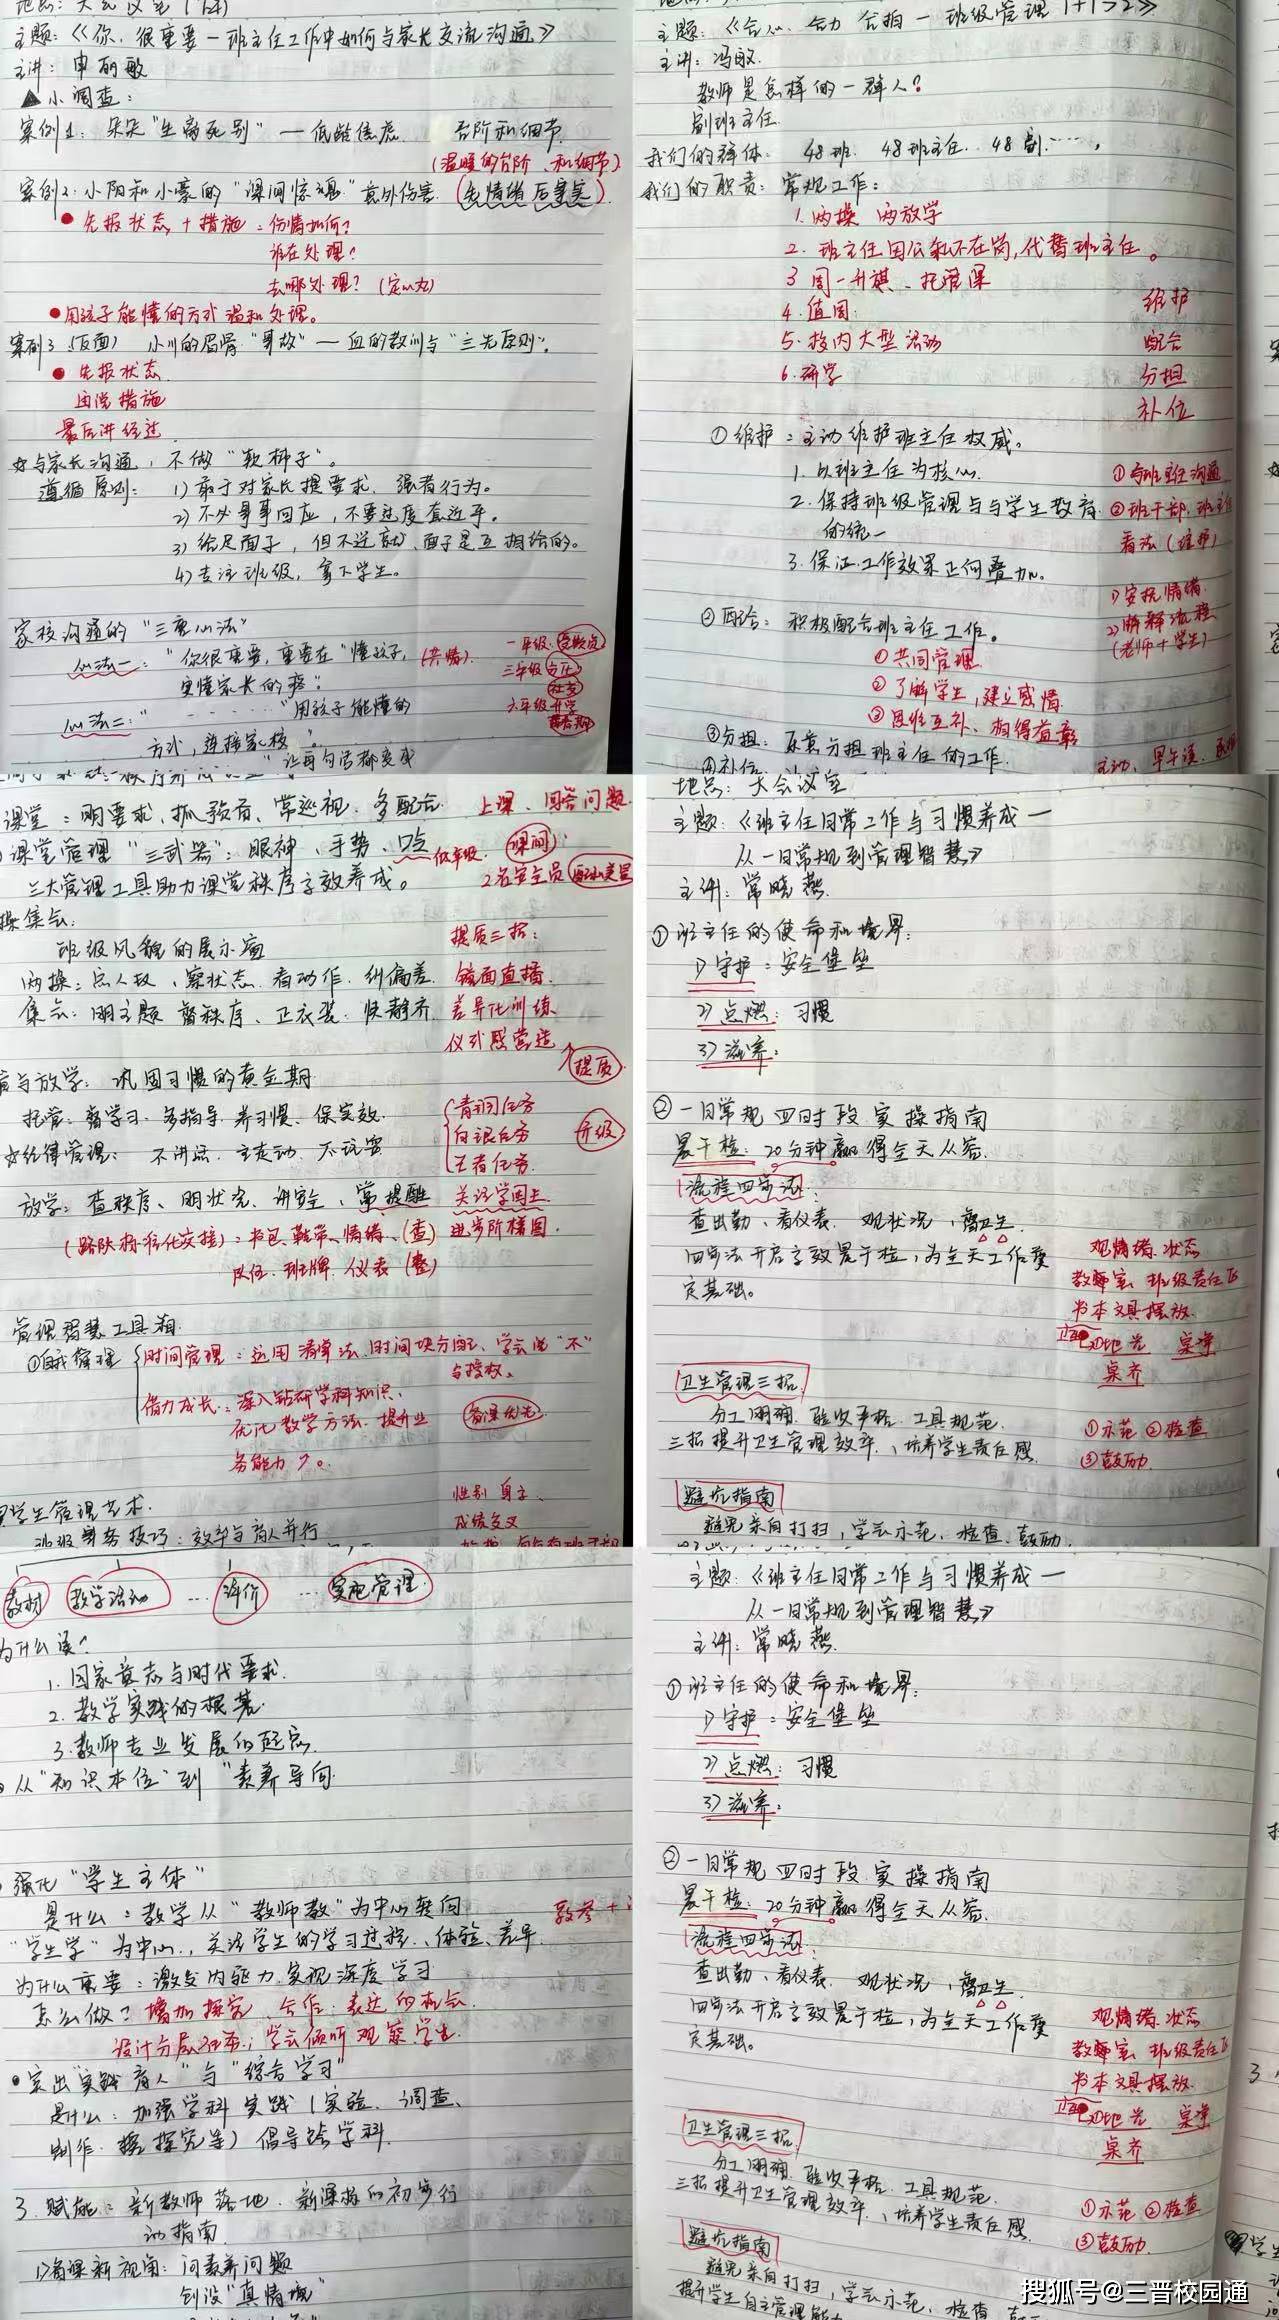 主题:《你,很重要—班主任工作中如何与家长交流沟通》
主讲:申丽敏
▲小调查:
案例1:朵朵"生离死别"—低龄焦虑 台阶和细节
(温暖的台阶、和细节)
案例2:小阳和小豪的"课间惊魂"意外伤害(先情绪后事实)
●先报状态+措施:伤情如何?
谁在处理?
去哪处理?(定心丸)
●用孩子能懂的方式温和处理。
案例3(反面)小川的眉骨"事故"—血的教训与"三先原则"。
●先报状态
再说措施
最后讲经过
与家长沟通,不做"软柿子"。
遵循原则:1)敢于对家长提要求,强者行为。
2)不必事事回应,不要过度套近乎。
3)给足面子,但不迁就,面子是互相给的。
4)专注班级,拿下学生。
家校沟通的"三重心法"
心法一:"你很重要,重要在"懂孩子,(共情)
更懂家长的疼"。
心法二:"……"用孩子能懂的
方式,连接家校"。
让每句话都变成
一年级:
三年级
社交
六年级 升学
主题:《合心 合力 合拍—班级管理1+1>2》
主讲:冯敏
教师是怎样的一群人?
副班主任
我们的群体:48班 48班主任 48副……,
我们的职责:常规工作:
1.两操 两放学
2.班主任因公私不在岗,代替班主任。
3 周一升旗、托管课
4.值周
5.校内大型活动
6.研学
维护
配合
分担
补位
①维护:主动维护班主任权威。
1.以班主任为核心
2.保持班级管理与与学生教育
的统一
3.保证工作效果正向叠加。
①与班主任沟通
②班干部,班主任
看法(维护)
②配合:积极配合班主任工作。
①共同管理
②了解学生,建立感情
③思维互补、相得益彰
1)安抚情绪
2)解释流程
(老师+学生)
③分担:乐意分担班主任的工作
④补位
主动,早午读,
课堂:明要求、抓预备、常巡视、多配合 上课、回答问题
课堂管理"三武器":眼神、手势、口令 低年级 课间
三大管理工具助力课堂秩序高效养成。 2名安全员
操集会:
班级风貌的展示窗
两操:点人数、察状态、看动作、纠偏差
集会:明主题 督秩序、正衣装、快静齐
提质三招:
镜面直播
差异化训练
仪式感营造
提质
与放学:巩固习惯的黄金期
托管:督学习 多指导 养习惯、保实效
纪律管理: 不讲话、不走动、不玩耍
青铜任务
白银任务
王者任务
升级
放学:查秩序、明状况、讲安全、常提醒 关注学困生
(路队标准化交接):书包、鞋带、情绪(查) 进步阶梯图
队伍、班牌、仪表(整)
管理智慧工具箱
①自我管理 时间管理:运用清单法、时间块分配、学会说"不"
与授权。
借力成长:深入钻研学科知识、
优化教学方法、提升业
务能力↗。
备课优先
学生管理艺术
班级事务技巧:效率与育人并行
性别 身高、
成绩交叉
地点:大会议室
主题:《班主任日常工作与习惯养成—
从一日常规到管理智慧》
主讲:常晓燕
①班主任的使命和境界:
1)守护:安全堡垒
2)点燃:习惯
3)滋养:
②一日常规四时段实操指南
晨午检:20分钟赢得全天从容
流程四步法:
查出勤、看仪表 观状况、督卫生
四步法开启高效晨午检,为全天工作奠
定基础。
观情绪、状态
教师室、班级责任区
书本文具摆放
地光 桌净
桌齐
卫生管理三招
分工明确 验收严格 工具规范
三招提升卫生管理效率、培养学生责任感
①示范②检查
③鼓励
避坑指南
避免亲自打扫,学会示范,检查、鼓励,
教材 教学活动 … 评价 … 实施管理
为什么读?
1.国家意志与时代要求
2.教学实践的根基
3.教师专业发展的起点
从"知识本位"到"素养导向
强化"学生主体"
是什么:教学从"教师教"为中心转向
"学生学"为中心,关注学生的学习过程、体验、差异
为什么重要:激发内驱力,实现深度学习
怎么做?增加探究、合作、表达的机会
设计分层任务;学会倾听观察学生
●突出"实践育人"与"综合学习"
是什么:加强学科实践(实验、调查、
制作、探究等)倡导跨学科
3.赋能:新教师落地,新课标的初步行
动指南
1)备课新视角:问素养问题
创设"真情境"
主题:《班主任日常工作与习惯养成—
从一日常规到管理智慧》
主讲:常晓燕
①班主任的使命和境界:
1)守护:安全堡垒
2)点燃:习惯
3)滋养:
②一日常规四时段实操指南
晨午检:20分钟赢得全天从容
流程四步法:
查出勤、看仪表 观状况、督卫生
四步法开启高效晨午检,为全天工作奠
定基础。
观情绪、状态
教师室、班级责任区
书本文具摆放
地光 桌净
桌齐
卫生管理三招
分工明确 验收严格 工具规范
三招提升卫生管理效率、培养学生责任感
①示范②检查
③鼓励
避坑指南
避免亲自打扫,学会示范,检查
提升学生自主管理能力
搜狐号@三晋校园通